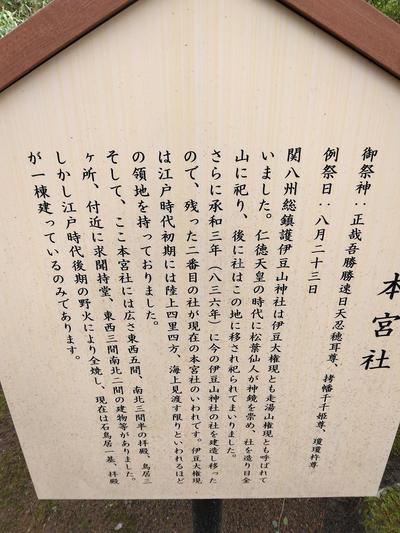 本宮社
御祭神：正哉吾勝勝速日天忍穂耳尊、拷幡千千姫尊、瓊瓊杵尊
例祭日：八月二十三日
関八州総鎮護伊豆山神社は伊豆大権現とも走湯山権現とも呼ばれて
いました。仁徳天皇の時代に松葉仙人が神鏡を崇め、社を造り日金
山に祀り、後に社はこの地に移され祀られてまいりました。
さらに承和三年（八三六年）に今の伊豆山神社の社を建造し移った
ので、残った二番目の社が現在の本宮社のいわれです。伊豆大権現
は江戸時代初期には陸上四里四方、海上見渡す限りといわれるほど
の領地を持っておりました。
そして、ここ本宮社には広さ東西五間、南北三間半の拝殿、鳥居三
ヶ所、付近に求聞持堂、東西三間南北二間の建物等がありました。
しかし江戸時代後期の野火により全焼し、現在は石鳥居一基、拝殿
が一棟建っているのみであります。